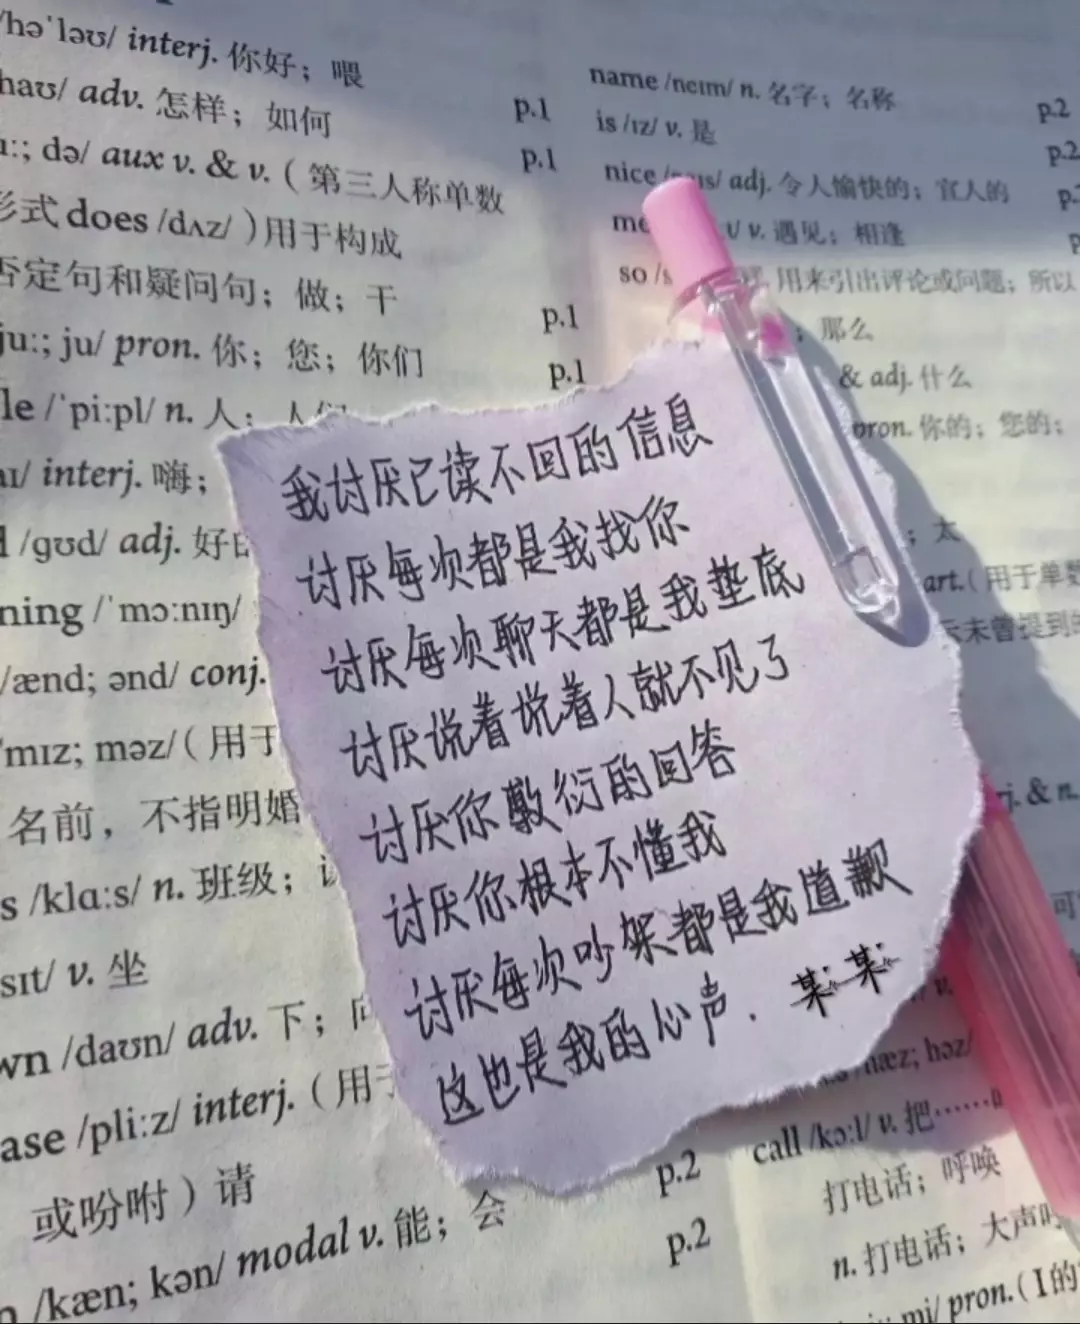 /həˈləʊ/ interj. 你好；喂
/haʊ/ adv. 怎样；如何 p.1
də/ aux v. & v.（第三人称单数 p.1
形式 does /dʌz/ ）用于构成
否定句和疑问句；做；干 p.1
ju:; ju/ pron. 你；您；你们 p.1
/ˈpi:pl/ n. 人；人们
interj. 嗨；
/ɡʊd/ adj. 好
/ˈmɔ:nɪŋ/
/ænd; ənd/ conj.
mɪz; məz/（用于
名前，不指明婚
/klɑ:s/ n. 班级；
sɪt/ v. 坐
/daʊn/ adv. 下；向
/pli:z/ interj.（用于
或吩咐）请 p.2
/kæn; kən/ modal v. 能；会 p.2
name /neɪm/ n. 名字；名称 p.2
is /ɪz/ v. 是 p.2
nice adj. 令人愉快的；宜人的
v. 遇见；相逢
so 用来引出评论或问题；所以
；那么
& adj. 什么
pron. 你的；您的；
；太
art.（用于单数
未曾提到的
& n.
həz/
call /kɔ:l/ v. 把……
打电话；呼唤
n. 打电话；大声
mi/ pron.（I的
我讨厌已读不回的信息
讨厌每次都是我找你
讨厌每次聊天都是我垫底
讨厌说着说着人就不见了
讨厌你敷衍的回答
讨厌你根本不懂我
讨厌每次吵架都是我道歉
这也是我的心声． 某某